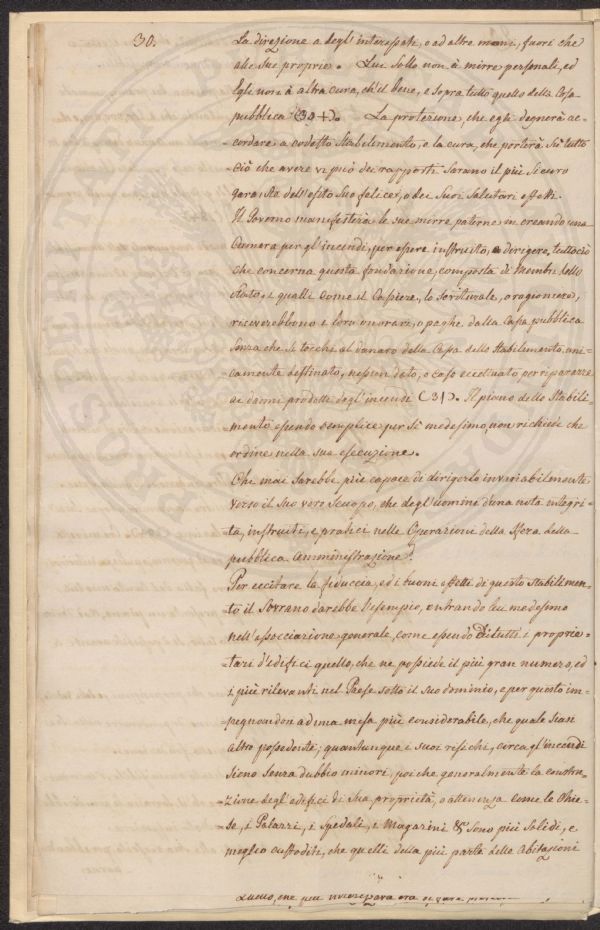 30.
La direzione a degl' interessati, o ad altre mani, fuori che
alle sue proprie. Lui sollo non à mirre personali, ed
Egli non à altra cura, ch'il bene, e sopra tutto quello della Cosa
pubblica (30+). La protezione, che egli degnerà ac-
cordare a codesto Stabilimento, e la cura, che porterà su tutto
ciò che avere vi può dei rapporti sarano il più sicuro
garante dell' esito suo felice, e dei suoi salutari effetti.
Il Governo manifesterà le sue mirre paterne in creando una
Camera per gl' incendi, per essere instruita, a dirigere, tuttociò
che concerna questa fondazione, composta di membri dello
Stato, i qualli come il Cassiere, lo scritturale, o ragioniere,
riceverebbono i loro onorari, o paghe dalla Cassa pubblica
senza che si tocchi al danaro della Cassa dello Stabilimento, uni-
-camente destinato, nessun dato, o caso eccettuato per riparazze
ai danni prodotti degl' incendi (31). Il piano dello Stabili-
-mento essendo semplice per si medesimo, non richiede che
ordine nella sua esecuzione.
Che mai sarebbe più capace di dirigerlo invariabilmente
verso il suo vero scuopo, che degl' uomini d'una nota integri-
-tà, instruiti, e pratici nelle Operazioni della sfera della
pubblica amministrazione?
Per eccitare la fiduccia, ed i buoni effetti di questo Stabilimen-
to il Sovrano darebbe l'esempio, entrando lui medesimo
nell' associazione generale, come essendo di tutti i proprie-
-tari d'edifici quello, che ne possiede il più gran numero, ed
i più rilevanti nel Paese sotto il suo dominio, e per questo im-
pegnandon ad una messa più considerabile, che quale siasi
altro possedente; quantunque i suoi resichi, circa gl' incendi
sieno senza dubbio minori, poi che generalmente la constru-
-zione degl' edifici di sua proprietà, o attenenza come le Chie-
-se, i Palazzi, i Spedali, i Magazini & sono più solidi, e
meglio custoditi, che quelli della più parte delle Abitazioni